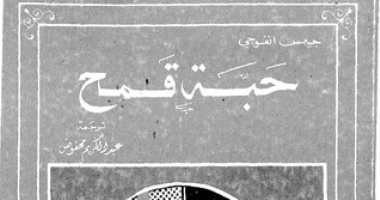 جيمس انغوجي
حبة قمح
ترجمة
عبد الكريم محفوض